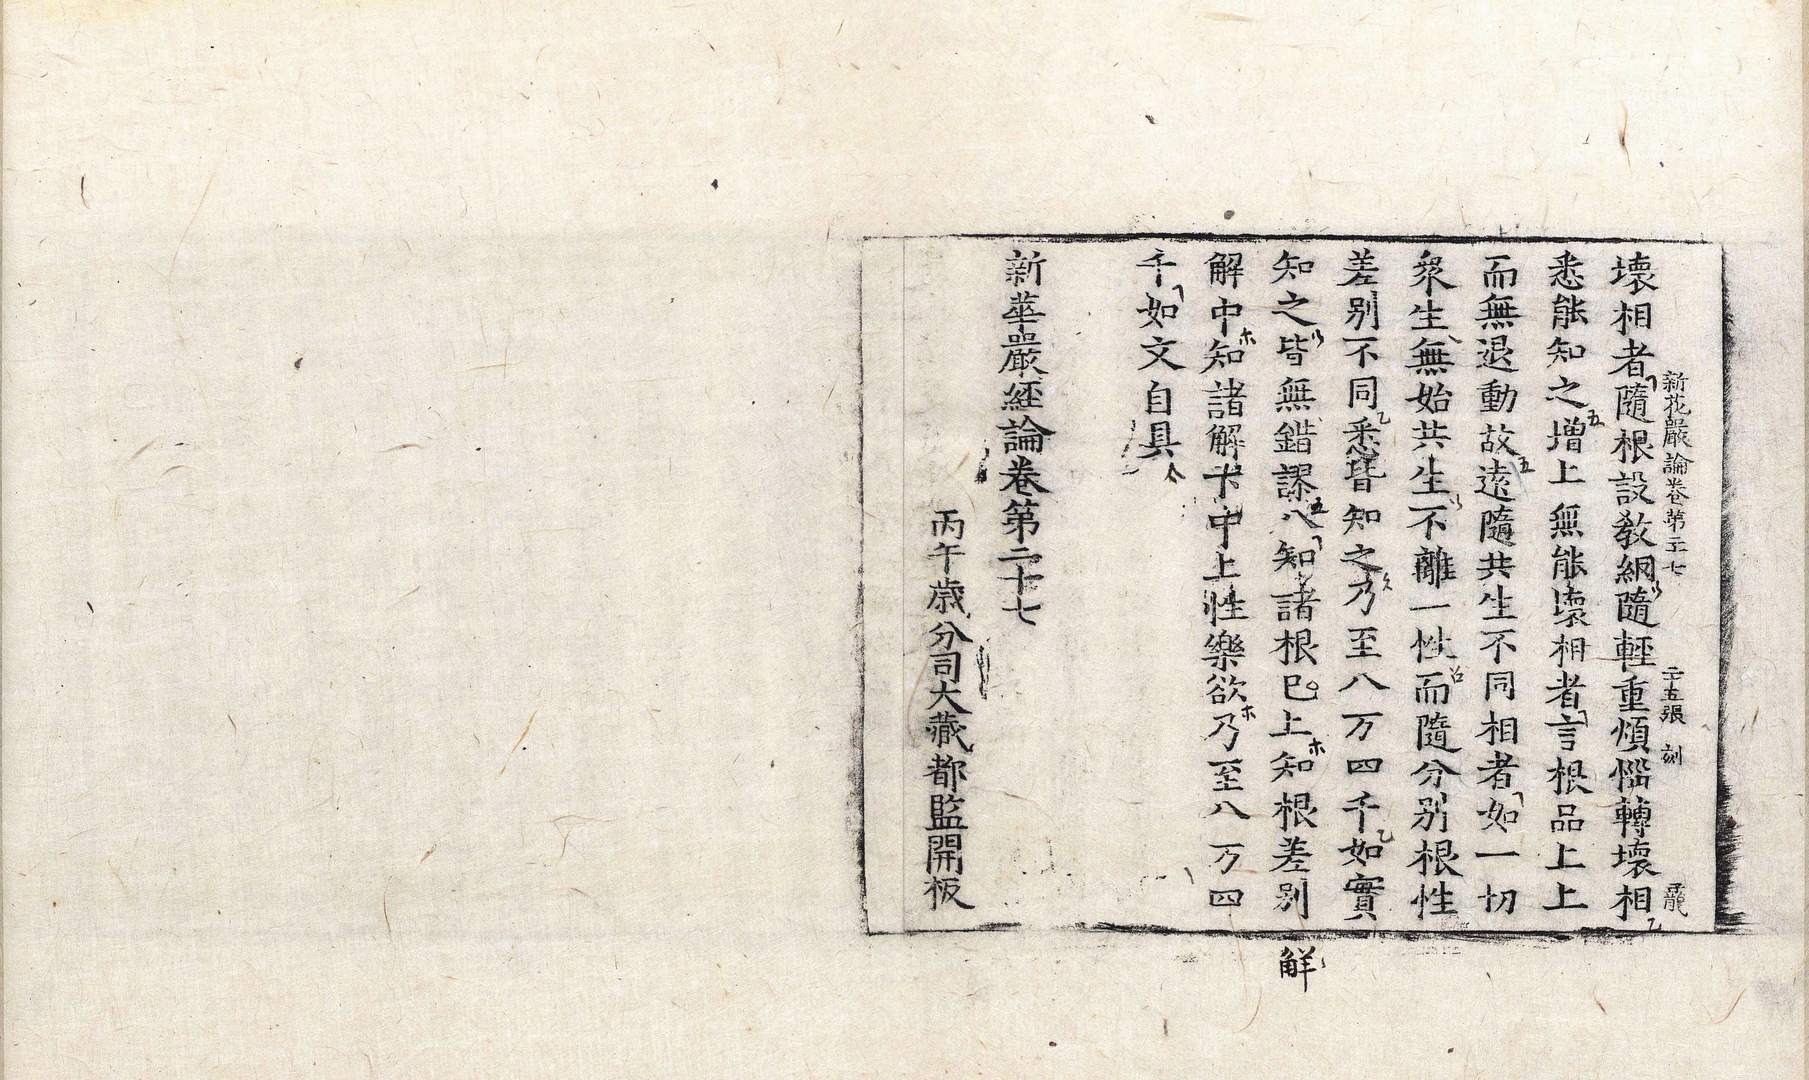 新花嚴論卷第二十七 二十五張 刻 龍
壞相者隨根設教網隨輕重煩惱轉壞相
悉能知之增上無能壞相者言根品上上
而無退動故遠隨共生不同相者如一切
衆生無始共生不離一性而隨分別根性
差別不同悉皆知之乃至八万四千如實
知之皆無錯謬八知諸根已上知根差別
解
解中知諸解下中上性樂欲乃至八万四
千如文自具
新華嚴經論卷第二十七
丙午歲分司大藏都監開板